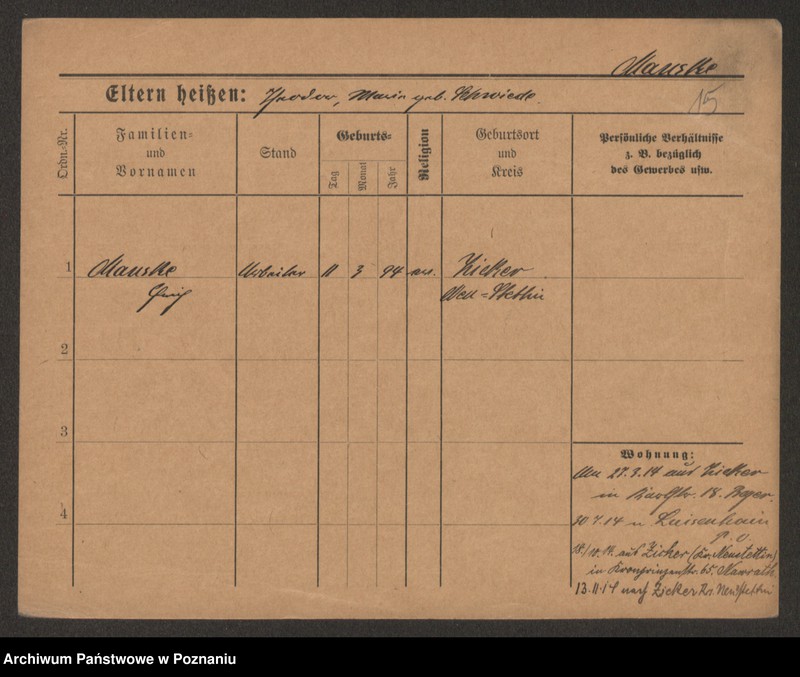 Manske
15
Eltern heißen: Theodor, Marie geb. Schwiede.
Ordn.-Nr.
Familien- und Vornamen
Stand
Geburts-
Tag
Monat
Jahr
Religion
Geburtsort und Kreis
Persönliche Verhältnisse z. B. bezüglich des Gewerbes usw.
1 Manske Arbeiter 11 3 94 ev. Zicker
Neu=Stettin
2
3
4
Wohnung:
An 27.3.14 aus Zicker
in 18.
14 n Luisenhain
14. aus Zicker (Kr. Neustettin)
in Kronprinzenstr. 65. Nawrath
13.11.14 nach Zicker Kr. Neustettin
Archiwum Państwowe w Poznaniu